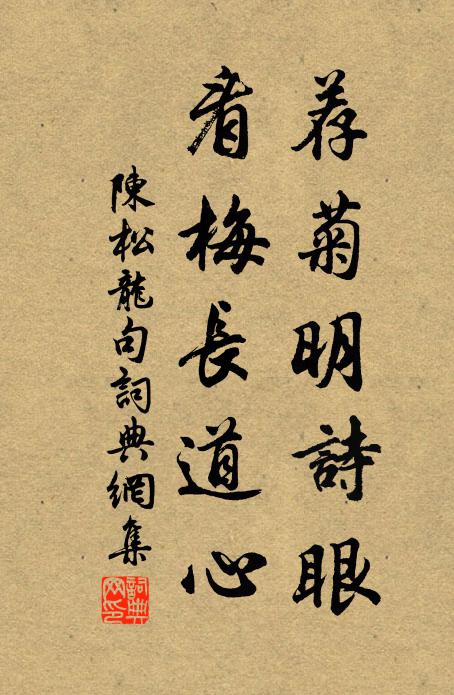 荐菊明詩眼
看梅長道心
陳松龍句詞典網集
詞典网印